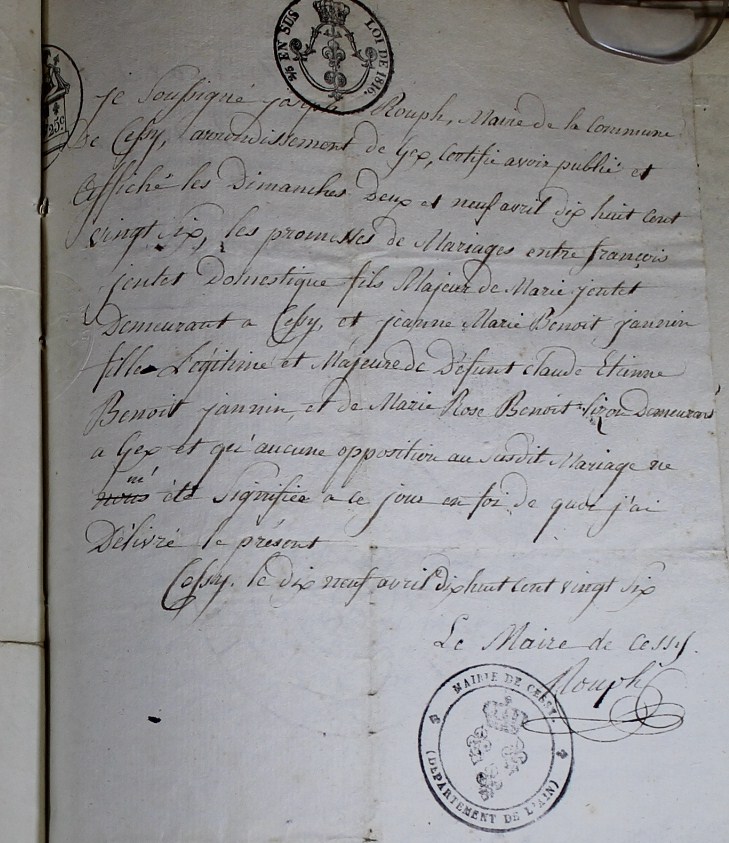 EN SUS LOI DE 1816.
25c
je soussigné joseph Rouph, Maire de la Commune
De Cessy, arrondissement de Gex, Certifie avoir publié et
affiché les Dimanches Deux et neuf avril dix huit cent
vingt Six, les promesses de Mariages entre françois
jentet Domestique fils Majeur de Marie jentet
Demeurant a Cessy, et jeanne Marie Benoit jannin
fille Légitime et Majeure de Défunt Claude Etienne
Benoit jannin, et de Marie Rose Benoit Demeurant
a Gex et qu'aucune opposition au susdit Mariage ne
m'
nous été Signifiée a ce jour en foi de quoi j'ai
Délivré le présent
Cessy. le dix neuf avril dix huit cent vingt Six
Le Maire de Cessy.
Rouph
MAIRIE DE CESSY.
(DÉPARTEMENT DE L'AIN)